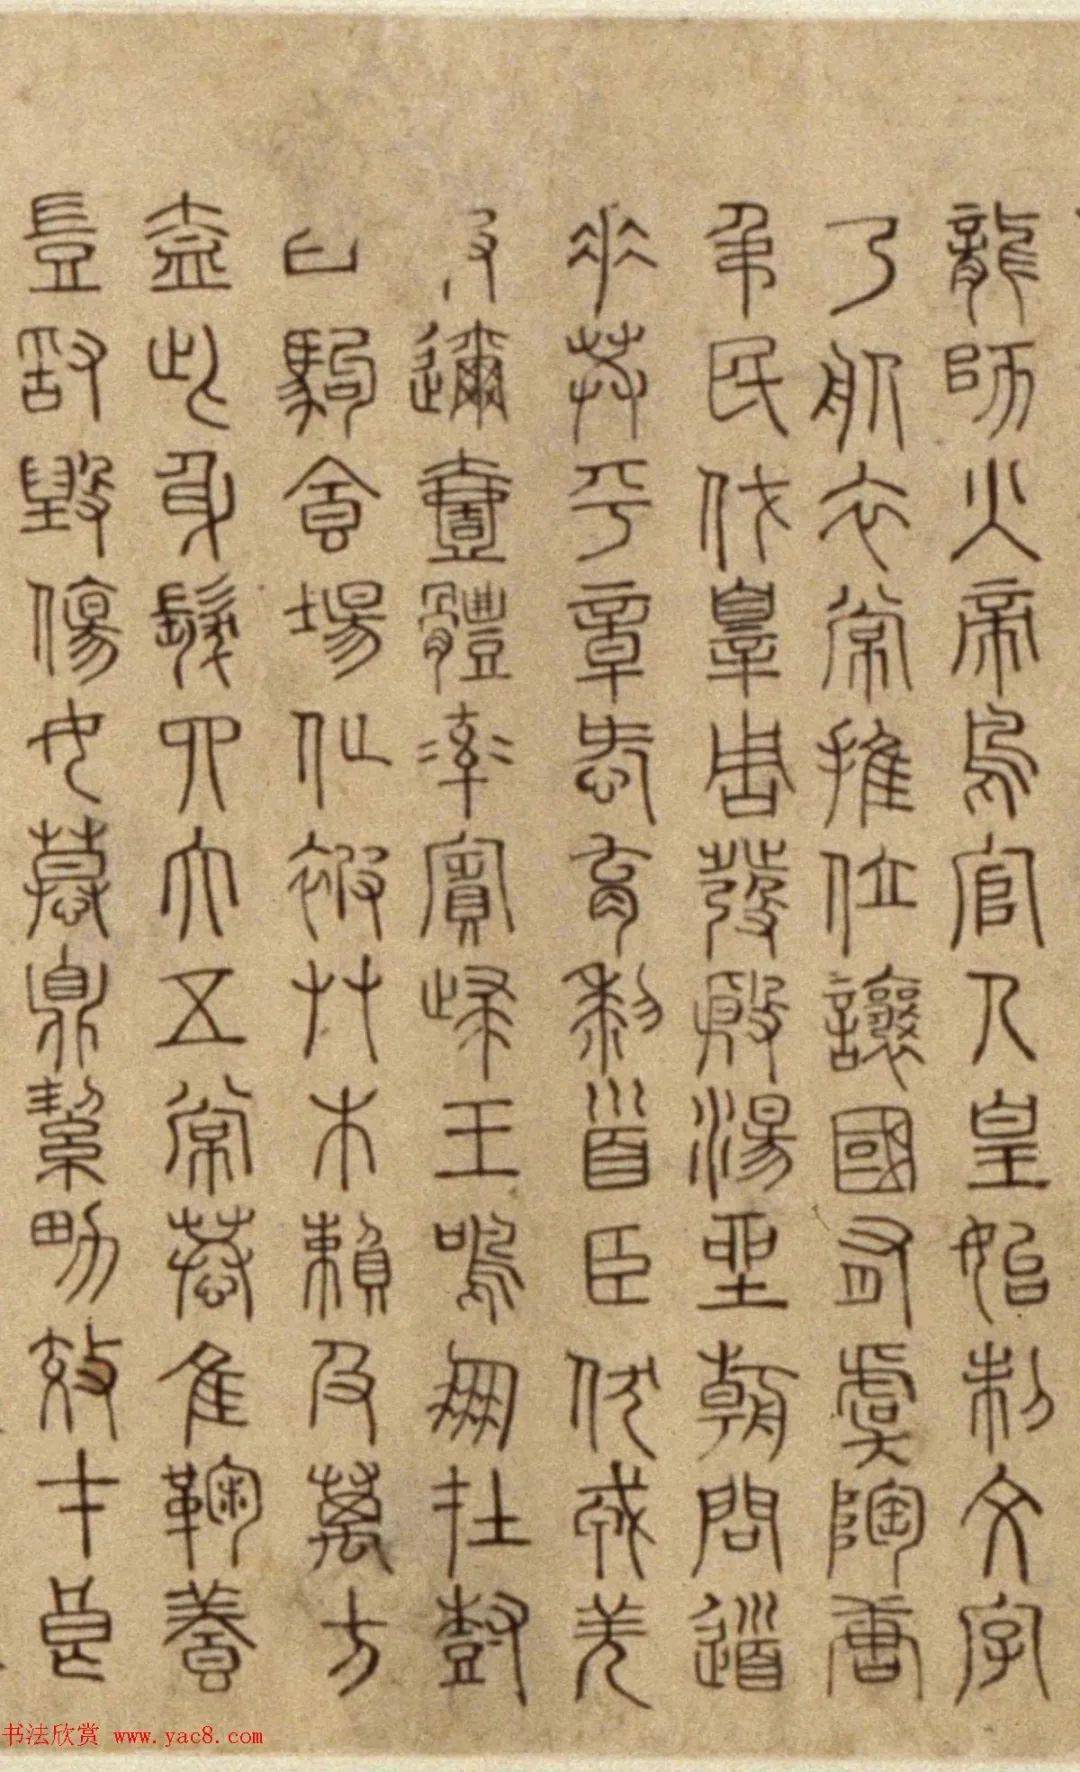 龍師火帝鳥官人皇始制文字
乃服衣常推位讓國有虞陶唐
弔民伐辠周發殷湯坐朝問道
垂拱平章愛育黎首臣伏戎羌
遐邇壹體率賓歸王鳴鳳在樹
白駒食場化被艸木賴及萬方
蓋此身髮四大五常恭惟鞠養
豈敢毀傷女慕貞絜男效才良
书法欣赏 www.yac8.com